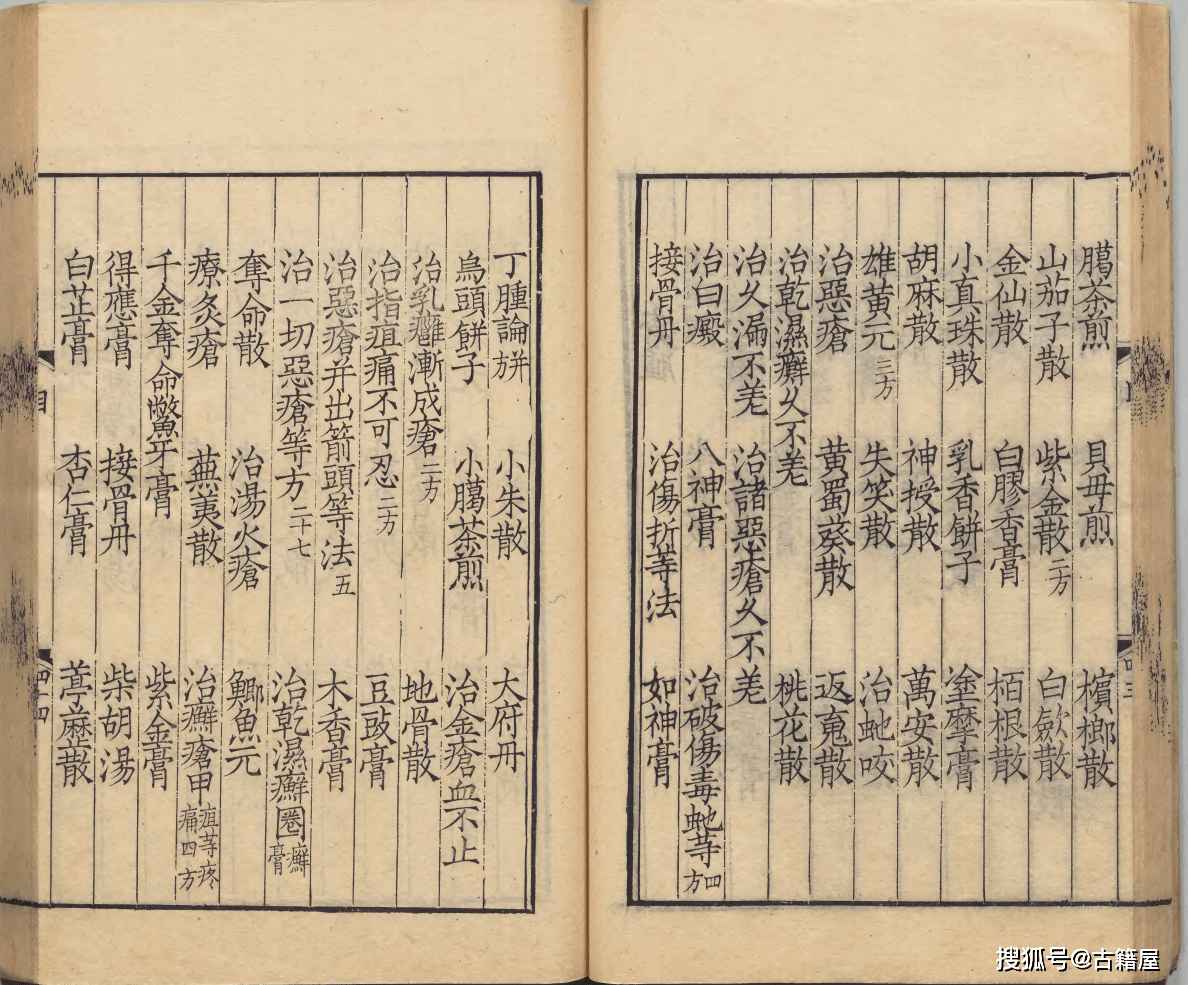 臈茶煎 貝母煎 檳榔散
山茄子散 紫金散二方 白歛散
金仙散 白膠香膏 栢根散
小真珠散 乳香餅子 塗摩膏
胡麻散 神授散 萬安散
雄黃元三方 失笑散 治虵咬
治惡瘡 黃蜀葵散 返䰟散
治乾濕癬久不羗 桃花散
治久漏不羗 治諸惡瘡久不羗
治白癜 八神膏 治破傷毒虵等四方
接骨丹 治傷折等法 如神膏
四三
丁腫論方 小朱散 大府丹
烏頭餅子 小臈茶煎 治金瘡血不止
治乳癰漸成瘡二方 地骨散
治指疽痛不可忍二方 豆豉膏
治惡瘡并出箭頭等法五 木香膏
治一切惡瘡等方二十七 治乾濕癬卷癬膏
奪命散 治湯火瘡 鯽魚元
療灸瘡 蕪荑散 治癬瘡甲疽等疼痛四方
千金奪命鱉牙膏 紫金膏
得應膏 接骨丹 柴胡湯
白芷膏 杏仁膏 葶藶散
目 四十四
搜狐号@古籍屋